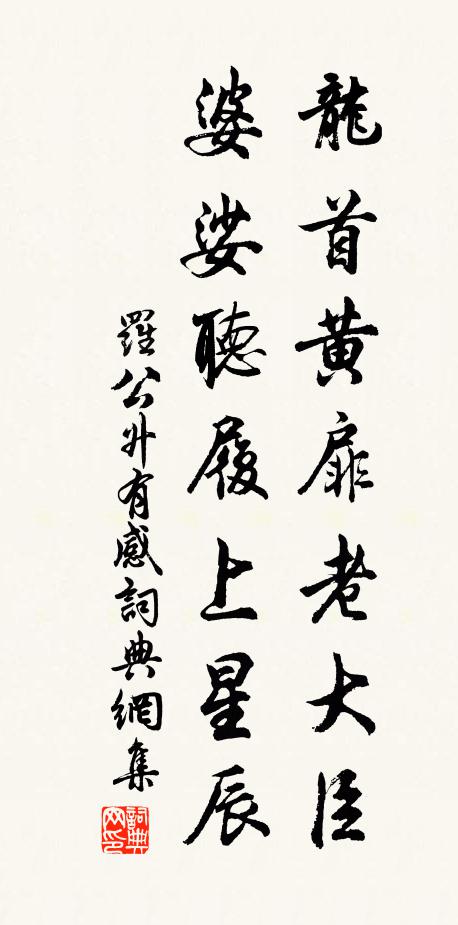 龍首黃扉老大臣
婆娑聽履上星辰
羅公升有感詞典網集
詞典网印